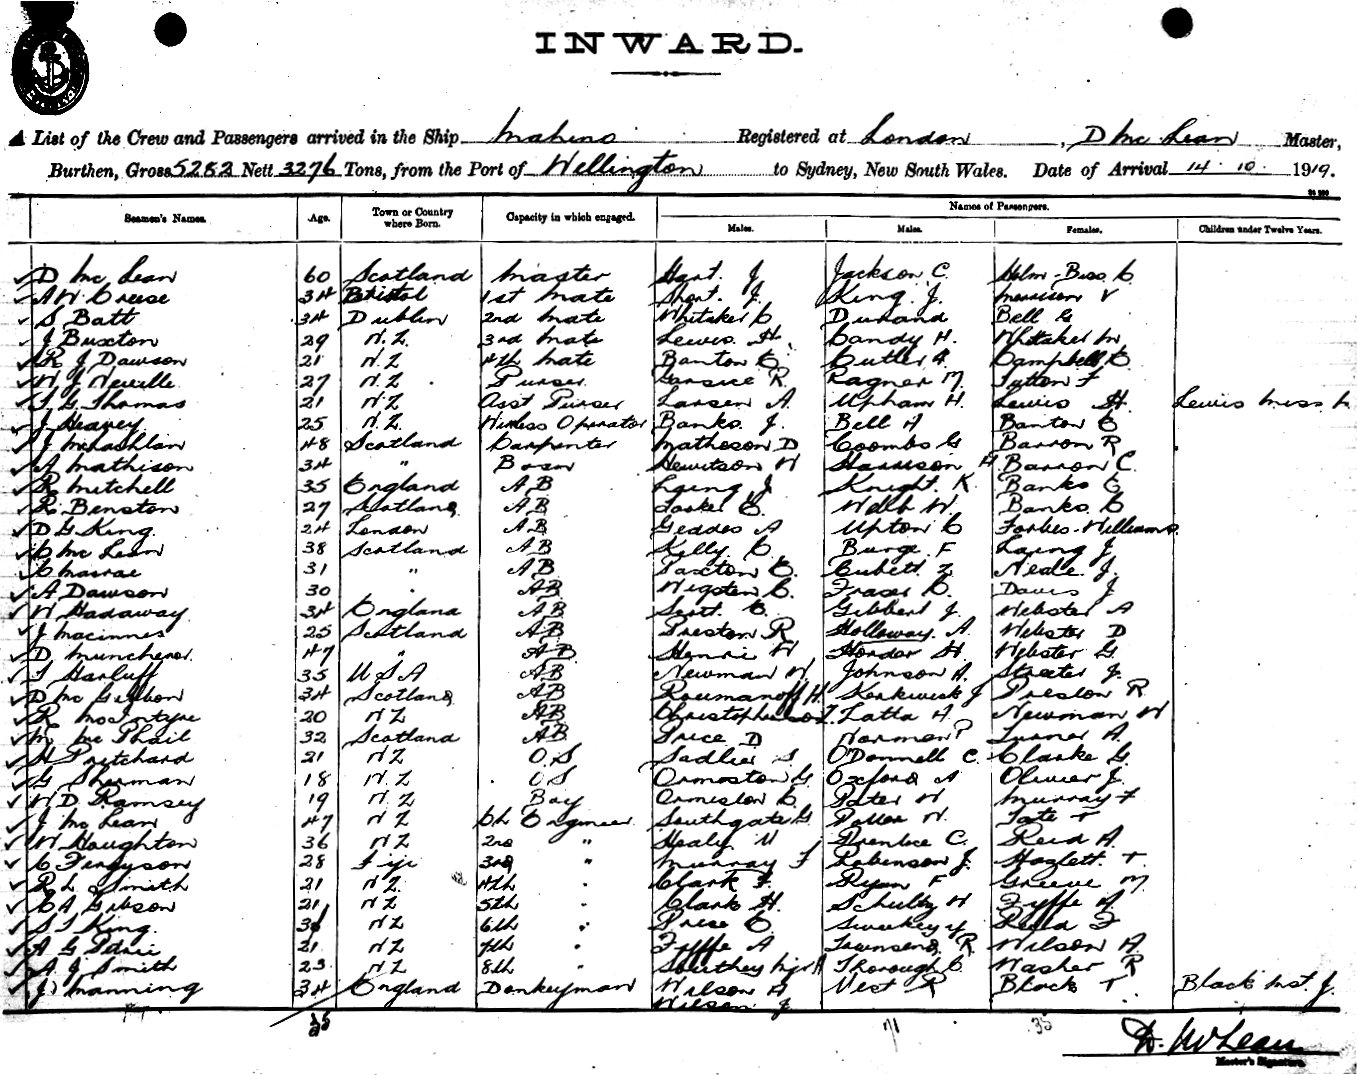 INWARD.
List of the Crew and Passengers arrived in the Ship Makino Registered at London, D Mc Lean Master,
Burthen, Gross 5282 Nett 3276 Tons, from the Port of Wellington to Sydney, New South Wales. Date of Arrival 14 10 1919.
Names of Passengers.
Seamen's Names. Age. Town or Country where Born. Capacity in which engaged. Males. Males. Females. Children under Twelve Years.
D Mc Lean 60 Scotland Master Hart. J. Jackson C. Holm-Biss C
A W Creese 34 Bristol 1st Mate Short. J. King. J. Morrison V
S Batt 34 Dublin 2nd Mate Whitaker C Durand Bell G
J Buxton 29 N.Z. 3rd Mate Lewis. H. Candy H. Whitaker M
R J Dawson 21 N.Z 4th Mate Banton C Cutler A Campbell C
W J Neville 27 N.Z Purser Garsice R Ragner M Tutton F
T G Thomas 21 NZ Asst Purser Larsen A. Upham H. Lewis H. Lewis Miss
J Heavey 25 N.Z. Wireless Operator Banks. J. Bell A Banton C
J McLachlan 48 Scotland Carpenter Matheson D Coombs G Barron R
A Mathison 34 " Bosn Hewitson W Harrison H Barron C.
R Mitchell 35 England AB Laing J Knight. K Banks C
R Benston 27 Scotland AB Webb W. Banks. C
D G King. 24 London AB Geddes A Upton C Forbes-Williams.
C Mc Lean 38 Scotland AB Kelly. C. Burge F Laing J
C Macrae 31 " AB Paxton C. Cubett Z Neale. J.
A Dawson 30 " AB Wigsten C. Fraser C. Davis J
W Hadaway 34 England AB Scott. C. Gibbert J. Webster A
J Macinnes 25 Scotland AB Preston R Holloway. A. Webster D
D Muncherer. 47 " AB Henrie W Hordor H. Webster G
T Harluff 35 USA AB Newman W. Johnson A. Streeter J.
D Mc Gibbon 34 Scotland AB Roumanoff H. Kerkwick J Preston R
R McIntyre 20 NZ AB Christophersen J. Latta A. Newman W
M Mc Phail 32 Scotland AB Price D Norman P Turner A.
H Pritchard 21 NZ O.S Sadlier S O'Donnell C. Clarke G.
G Sherman 18 N.Z OS Ormiston G Oxford A Olivier J.
W D Ramsey 19 N.Z Boy Ormiston C. Pater W Murray F
J Mc Lean 47 NZ Ch Engineer Southgate G. Potter W. Tate T
W Houghton 36 NZ 2nd " Healy U Prentice C. Reid A.
C Ferguson 28 Fiji 3rd " Murray F Robinson J. Hazlett T.
R L Smith 21 NZ 4th " Clark F. Ryan F Greeve M
C A Gibson 21 NZ 5th " Clark H. Schultz W Fyffe A.
S T King. NZ 6th " Price C Reid F
A G Petrie 21 NZ 7th " Fyffe A Townsend R Wilson A.
A J Smith 23 NZ 8th " Southey Thorough C. Washer R
J Manning 34 England Donkeyman Wilson A West R Black T Black Mst. J.
Wilson J
71 35
D. McLean
Master's Signature.